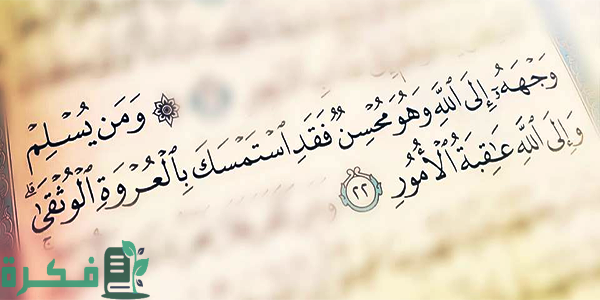 ۞ وَمَن يُسْلِمْ
وَجْهَهُۥٓ إِلَى ٱللَّهِ وَهُوَ مُحْسِنٌ فَقَدِ ٱسْتَمْسَكَ بِٱلْعُرْوَةِ ٱلْوُثْقَىٰ ۗ
وَإِلَى ٱللَّهِ عَٰقِبَةُ ٱلْأُمُورِ ٢٢
فكرة